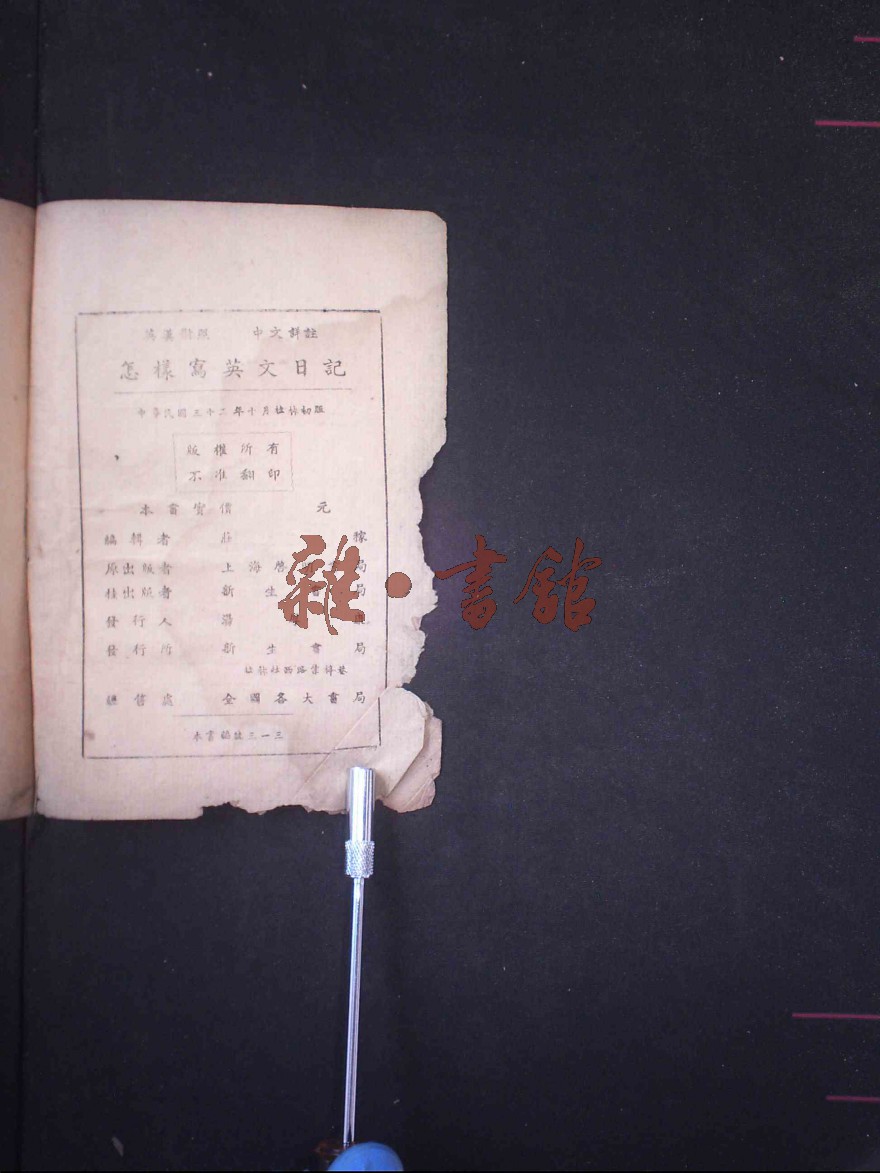 英漢對照 中文詳註
怎樣寫英文日記
中華民國三十二年十月桂林初版
版權所有
不准翻印
本書實價 元
編輯者 莊 稼
原出版者 上海啓明書局
桂出版者 新生書局
發行人
發行所 新生書局
總售處 全國各大書局
本書編號三一三
雜·書館